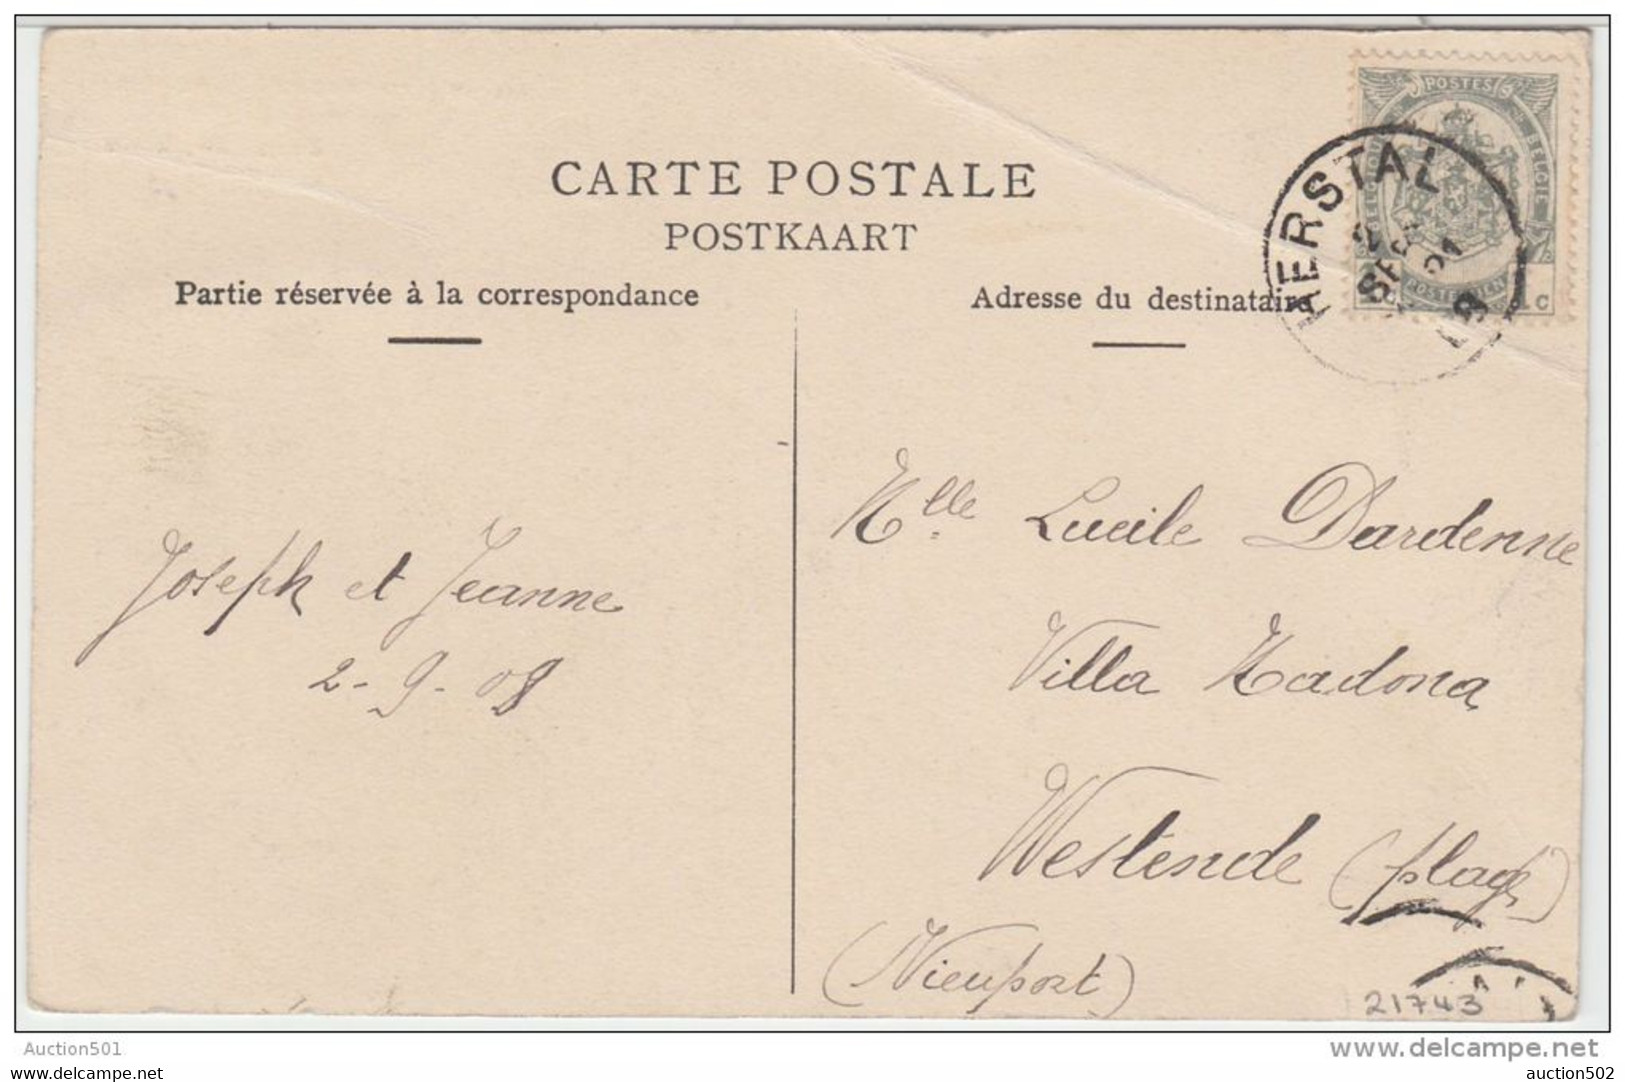 CARTE POSTALE
POSTKAART
Partie réservée à la correspondance
Adresse du destinataire
POSTES
BELGIE
HERSTAL
2
SEPT
21
POSTERIJEN
C
Joseph et Jeanne
2-9-08
Mlle Lucile Dardenne
Villa Madona
Westende (plage)
(Nieuport)
21743
Auction501
www.delcampe.net
auction501.eu
auction502